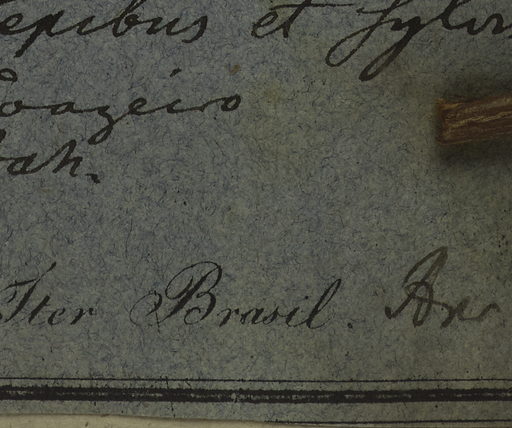 sepibus et sylvis
Joazeiro
Bah.
Iter Brasil.